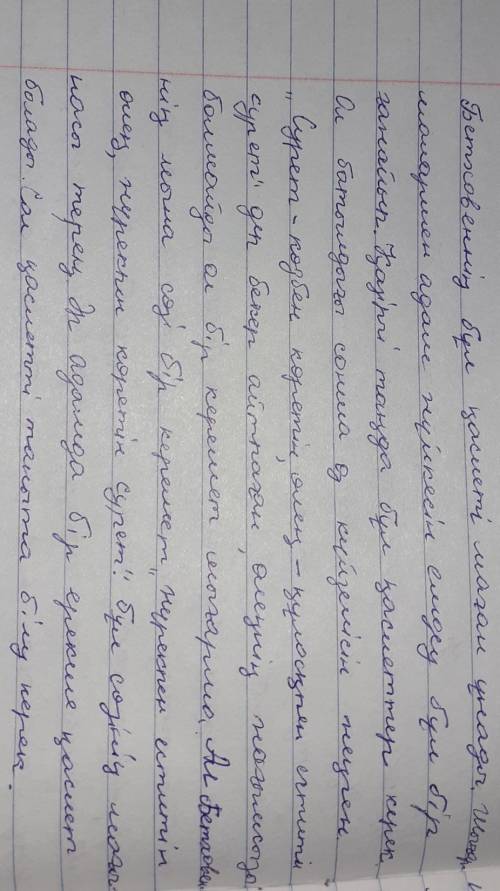 Бетховеннің бұл қасиеті маған ұнады.
мамармен адам жүйкесін емдеу бұл бір
ғажайып. Қазіргі таңда бұл қасиеттер керек
Ол батылдығы сонша өз күйзелісін жеңген.
"Сурет - көзбен көретін өлең, өлең - құлақпен еститін
сурет" деп бекер айтпаған, өлеңнің
болмайды ол бір керемет шығарма. Ал Бетховен
нің мына сөзі бір керемет "жүрекпен еститін
өлең, жүрекпен көретін сурет". Бұл сөзінің мағы
насы терең. Әр адамда бір ерекше қасиет
болады. Сол қасиетті таныта білу керек.